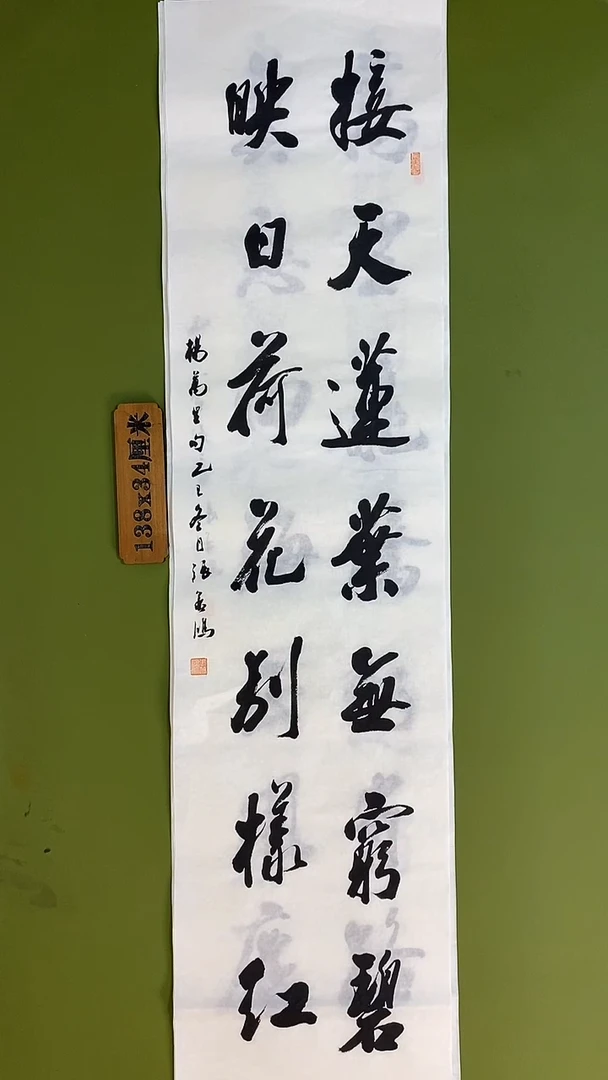 接天蓮葉無窮碧
映日荷花别樣红
楊萬里句乙巳冬日張孟鴻
138x34厘米